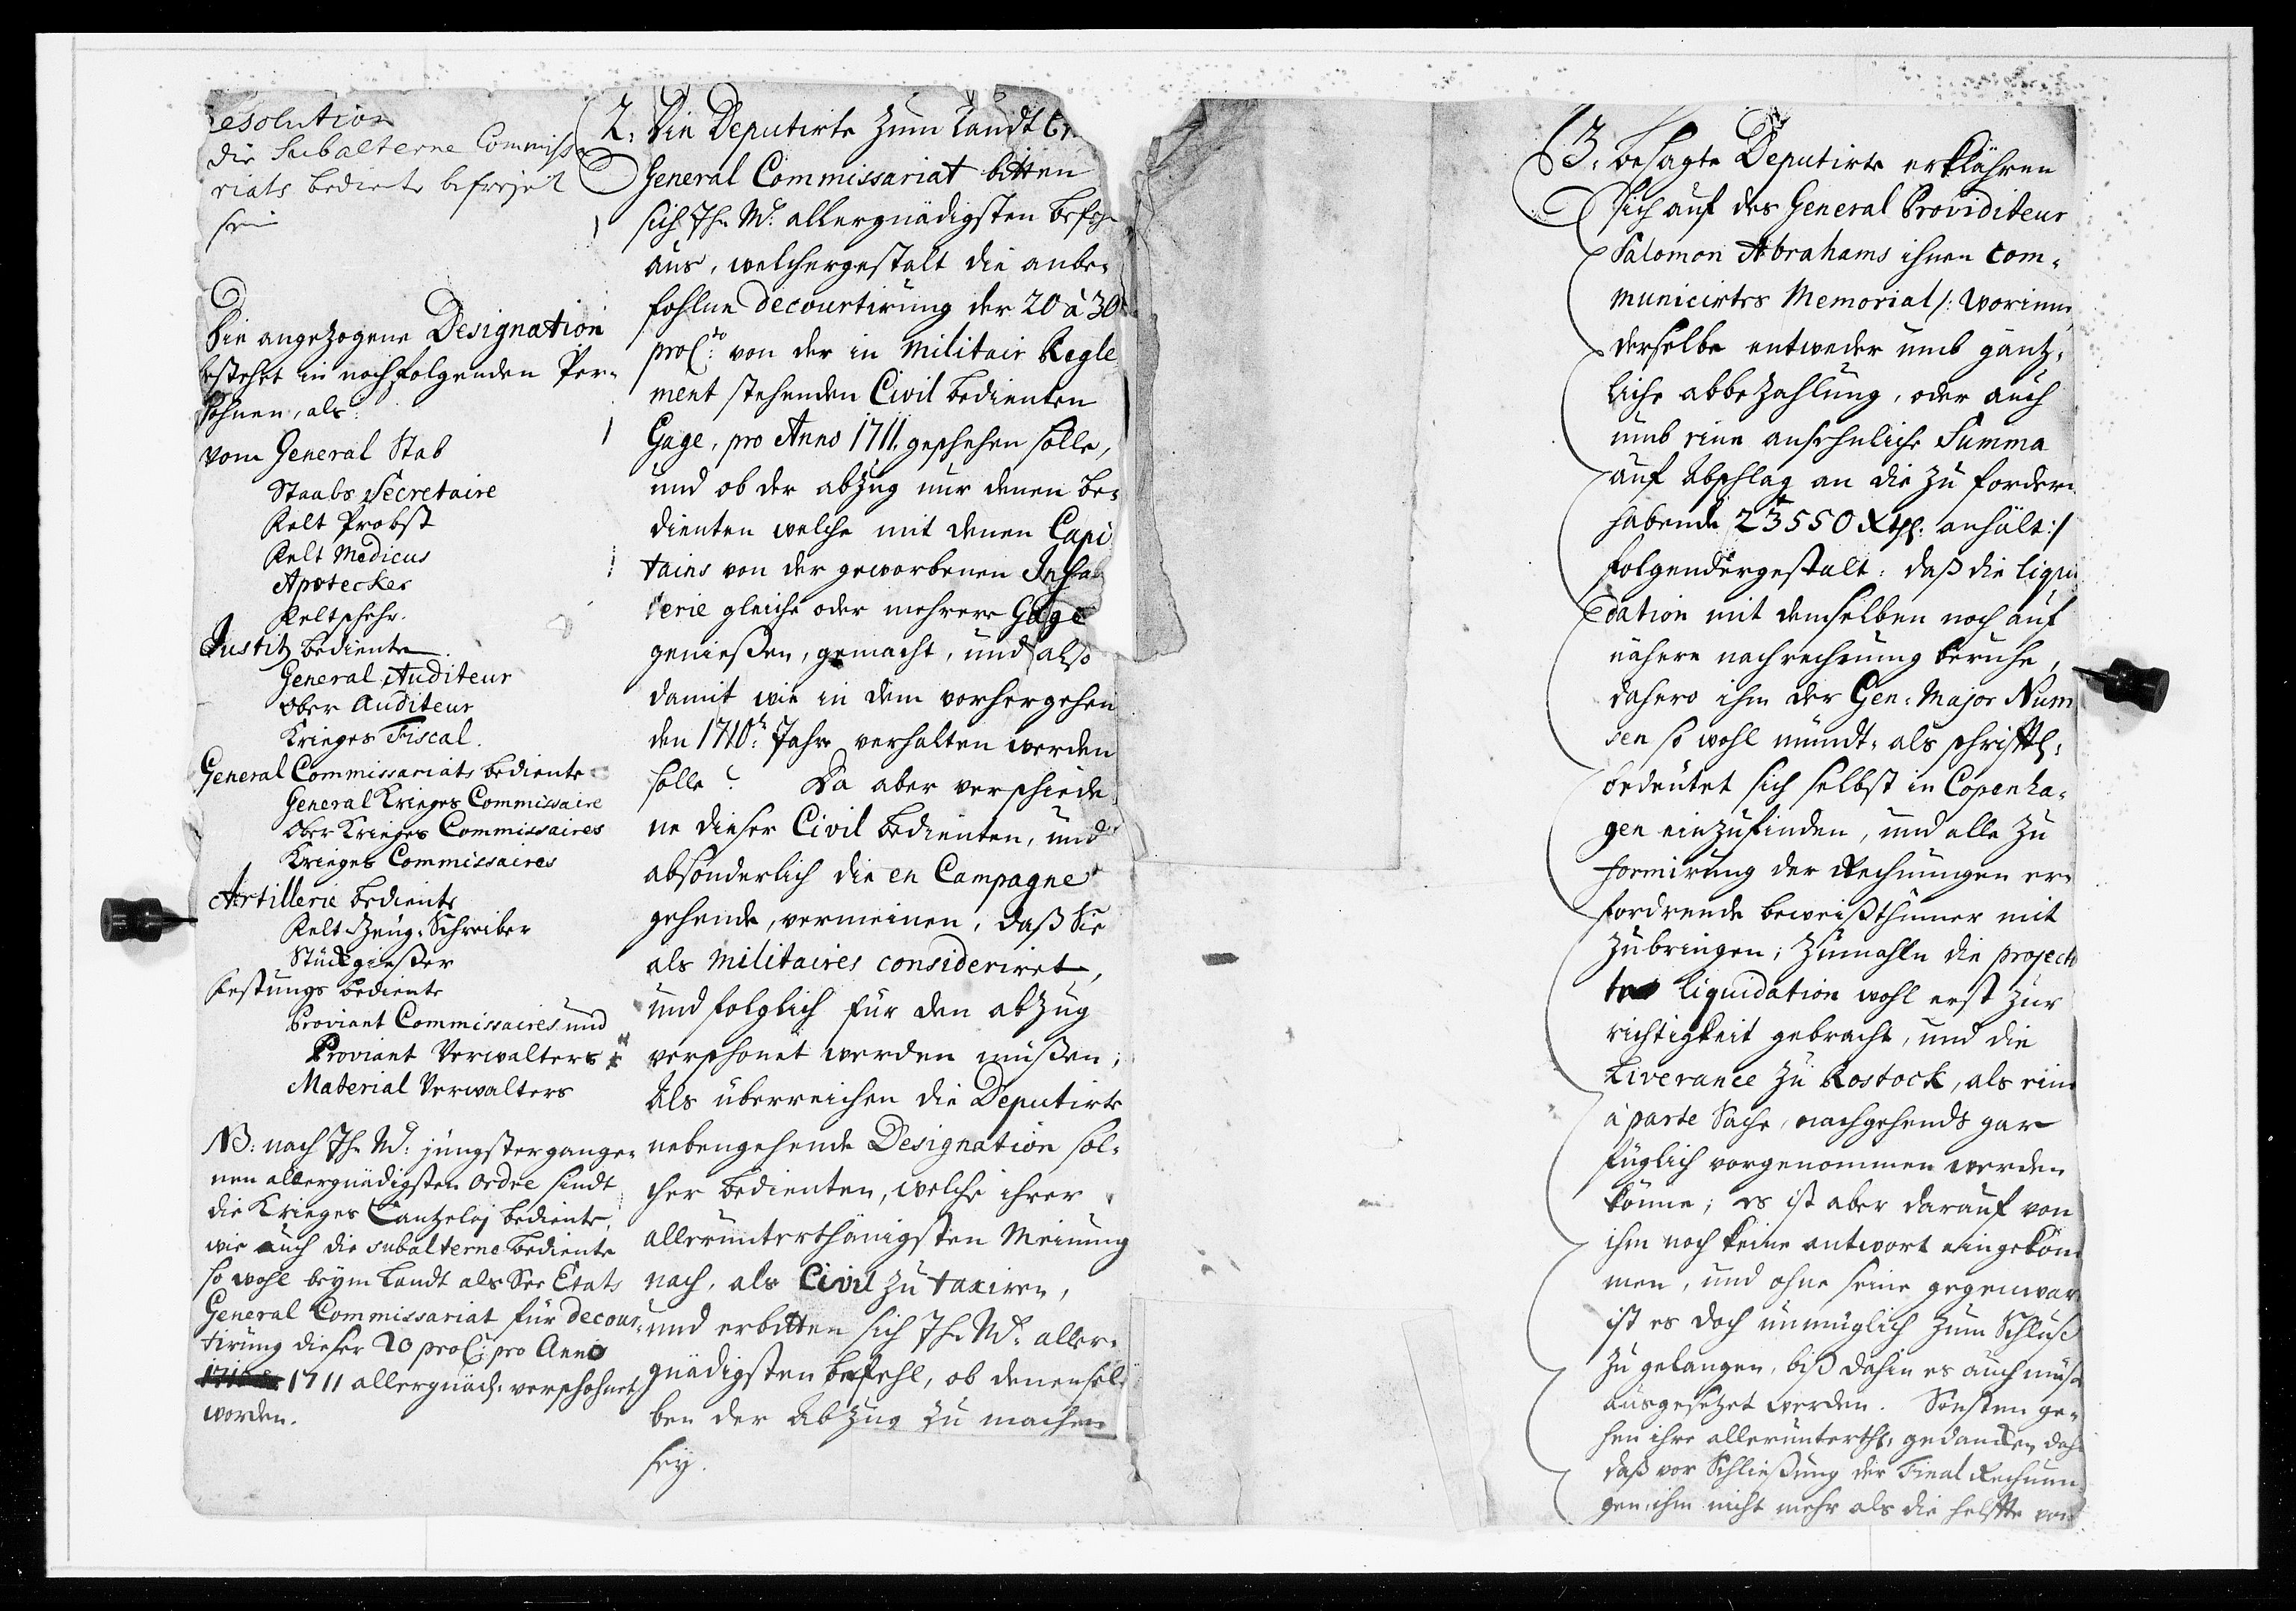 esolution
die Subalterne Commissa
riats bediente befreyet
sein
Die angezogene Designation
bestehet in nachfolgenden Per¬
sohnen, als:
vom General Stab
Staabs Secretaire
Felt Probst
Felt Medicus
Apotecker
Feltscher.
Justitz bediente.
General Auditeur
Ober Auditeur
Krieges Fiscal.
General Commissariats bediente
General Krieges Commissaire
Ober Krieges Commissaires
Krieges Commissaires
Artillerie bediente
Felt-Zeug-Schreiber
Stückgießer
Festungs bediente
Proviant Commissaires und
Proviant Verwalters
Material Verwalters
NB: nach Ihr Mt: jüngstergange¬
nen allergnädigsten Ordre sindt
die Krieges Cantzeley bediente,
wie auch die subalterne bediente
so wohl beym Landt als See Etats
General Commissariat für decour¬
tirung dieser 20 proC: pro Anno
1711 allergnäd: verschohnet
worden.
2. Die Deputirte zum Landt
General Commissariat bitten
sich Ihr Mt. allergnädigsten Befeh
aus, welchergestalt die anbe¬
fohlne decourtirung der 20 à 30
proCto: von der in Militair Regle
ment stehenden Civil bedienten
Gage, pro Anno 1711. geschehen solle,
und ob der abzug nur denen be¬
dienten welche mit denen Capi
tains von der geworbenen Infan
terie gleiche oder mehrere Gage
genießen, gemacht, und also
damit wie in dem vorhergehen
den 1710t: Jahre verhalten werden
solle? Da aber verschiede
ne dieser Civil bedienten, und
absonderlich die en Campagne
gehende, vermeinen, daß Sie
als Militaires consideriret,
und folglich für den abzug
verschonet werden müßen;
Als überreichen die Deputirte
nebengehende Designation sol¬
cher bedienten, welche ihrer
allerunterthänigsten Meinung
nach, als Civil zu taxiren,
und erbitten sich Ihr Mt: aller¬
gnädigsten befehl, ob denensel¬
ben der Abzug zu machen
sey.
3. besagte Deputirte erklähren
sich auf des General Providiteur
Salomon Abrahams ihnen com¬
municirtes Memorial /: worinne
derselbe entweder umb gäntz¬
liche abbezahlung, oder auch
umb eine ansehnliche Summa
auf Abschlag an die zu fordern
habende 23550 Rthl: anhält :/
folgendergestalt: daß die liqui
dation mit demselben noch auf
nähere nachrechnung beruhe,
dahero ihm der Gen: Major Num
sen so wohl mündt- als schrifftl:
bedeutet sich selbst in Copenha¬
gen einzufinden, und alle zu
formirung der Rechnungen er¬
fordrende beweißthümer mit
zubringen; zumahln die projectir
te liquidation wohl erst zur
richtigkeit gebracht, und die
Liverance zu Rostock, als eine
à parte Sache, nachgehends gar
füglich vorgenommen werden
könne; es ist aber darauf von
ihm noch keine antwort eingekom
men, und ohne seine gegenwart
ist es doch unmüglich zum Schluß
zu gelangen, biß dahin es auch müße
ausgesetzet werden. Sonsten ge¬
hen ihre allerunterth: gedancken dah
daß vor Schließung der Final Rechnun
gen, ihm nicht mehr als die helffte von